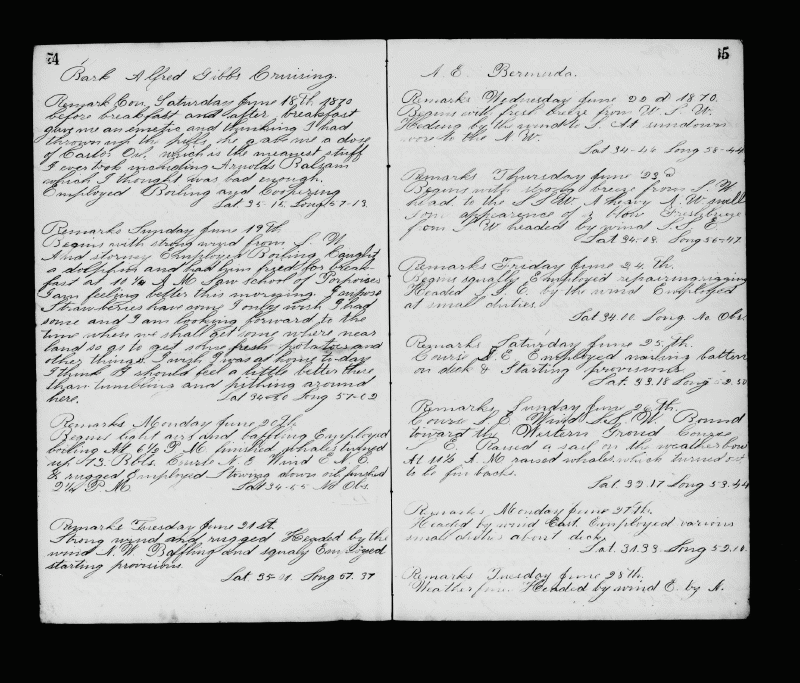 54
Bark Alfred Gibbs Cruising.
Remark Con. Saturday June 18th 1870
before breakfast and after breakfast
gave me an emetic and thinking I had
thrown up the pills, he gave me a dose
of Castor Oil, which is the meanest stuff
I ever took including Arnolds Balsam
which I thought was bad enough.
Employed Boiling and Coopering
Lat 35-15. Long 57-13.
Remarks Sunday June 19th
Begins with strong wind from S. W
And stormy Employed Boiling Caught
a dolphin and had him fried for break-
fast at 11 ½ A M Saw school of Porpoises
I am feeling better this morning. I suppose
Strawberries have come I only wish I had
some and I am looking forward to the
time when we shall get some where near
land so as to get some fresh potatoes and
other things. I wish I was at home to-day
I think I should feel a little better there
than tumbling and pitching around
here. Lat 34-50 Long 57-02
Remarks Monday June 20th
Begins light airs and baffling Employed
boiling At 6 ½ P M finished whales turned
up 73. Bbls. Course N. E Wind E. N. E
& rugged Employed Stowing down oil finished
2 ½ P. M Lat 34-55 No Obs.
Remarks Tuesday June 21st.
Strong wind and rugged Headed by the
wind N. W. Baffling and squaly Employed
starting provisions.
Lat 35-11. Long 57. 37
55
N. E. Bermuda.
Remarks Wednesday June 22 d 1870.
Begins with fresh breeze from W. S. W.
Heading by the wind to S. At sundown
wore to the N. W.
Lat 34-46 Long 58-44
Remarks Thursday June 23d
Begins with strong breeze from S. W
head to the S S W A heavy N. W swell
Some appearence of a blow Fresh breeze
from S W headed by wind S. S. E.
Lat 34.18. Long 56-47
Remarks Friday June 24. th.
Begins squally Employed repairing rigging
Headed S. S. E. by the wind Employed
at small duties.
Lat 34.00. Long. No Obs.
Remarks Saturday June 25,th.
Course S. E. Employed nailing batten
on deck & Starting provisions.
Lat. 33.18 Long 52.50
Remarks Sunday June 26th.
Course S E Wind S. S. W. Bound
toward the Western Ground Course
S E. Raised a sail on the weather bow
At 11½ A. M raised whales which turned out
to be finbacks.
Lat. 32.17 Long 53.44
Remarks Monday June 27th.
Headed by wind East. Employed various
small duties about deck.
Lat. 31.33. Long 52.10.
Remarks Tuesday June 28th
Weather fine Headed by wind E. by N.